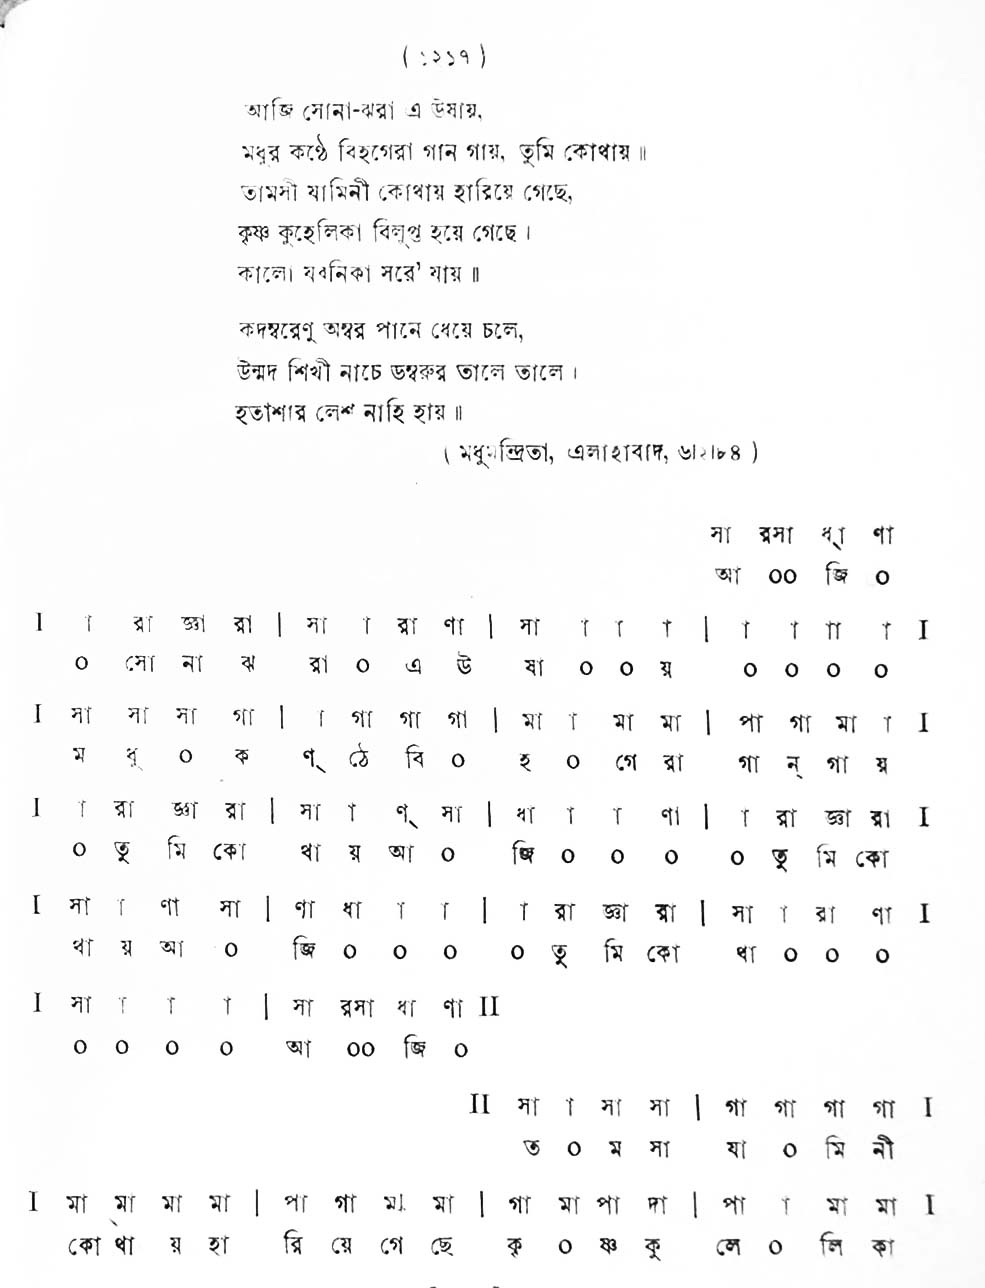 ( ১২১৭ )
আজি সোনা-ঝরা এ উষায়,
মধুর কণ্ঠে বিহগেরা গান গায়, তুমি কোথায় ॥
তামসী যামিনী কোথায় হারিয়ে গেছে,
কৃষ্ণ কুহেলিকা বিলুপ্ত হয়ে গেছে ।
কালো যবনিকা সরে' যায় ॥
কদম্বরেণু অম্বর পানে ধেয়ে চলে,
উন্মদ শিখী নাচে ডম্বরুর তালে তালে ।
হতাশার লেশ নাহি হায় ॥
( মধুমন্দ্রিতা, এলাহাবাদ, ৬।২।৮৪ )
সা রসা ধ্া ণা
আ ০০ জি ০
I া রা জ্ঞা রা | সা া রা ণা | সা া া া | া া াা া I
০ সো না ঝ রা ০ এ উ ষা ০ ০ য় ০ ০ ০ ০
I সা সা সা গা | া গা গা গা | মা া মা মা | পা গা মা া I
ম ধু ০ ক ণ্ ঠে বি ০ হ ০ গে রা গা ন্ গা য়
I া রা জ্ঞা রা | সা া ণ্ সা | ধা া া ণা | া রা জ্ঞা রা I
০ তু মি কো থা য় আ ০ জি ০ ০ ০ ০ তু মি কো
I সা া ণা সা | ণা ধা া া | া রা জ্ঞা রা | সা া রা ণা I
থা য় আ ০ জি ০ ০ ০ ০ তু মি কো থা ০ ০ ০
I সা া া া | সা রসা ধা ণা II
০ ০ ০ ০ আ ০০ জি ০
II সা া সা সা | গা গা গা গা I
ত ০ ম সা যা ০ মি নী
I মা মা মা মা | পা গা মা মা | গা মা পা দা | পা া মা মা I
কো থা য় হা রি য়ে গে ছে কৃ ০ ষ্ণ কু লে ০ লি কা